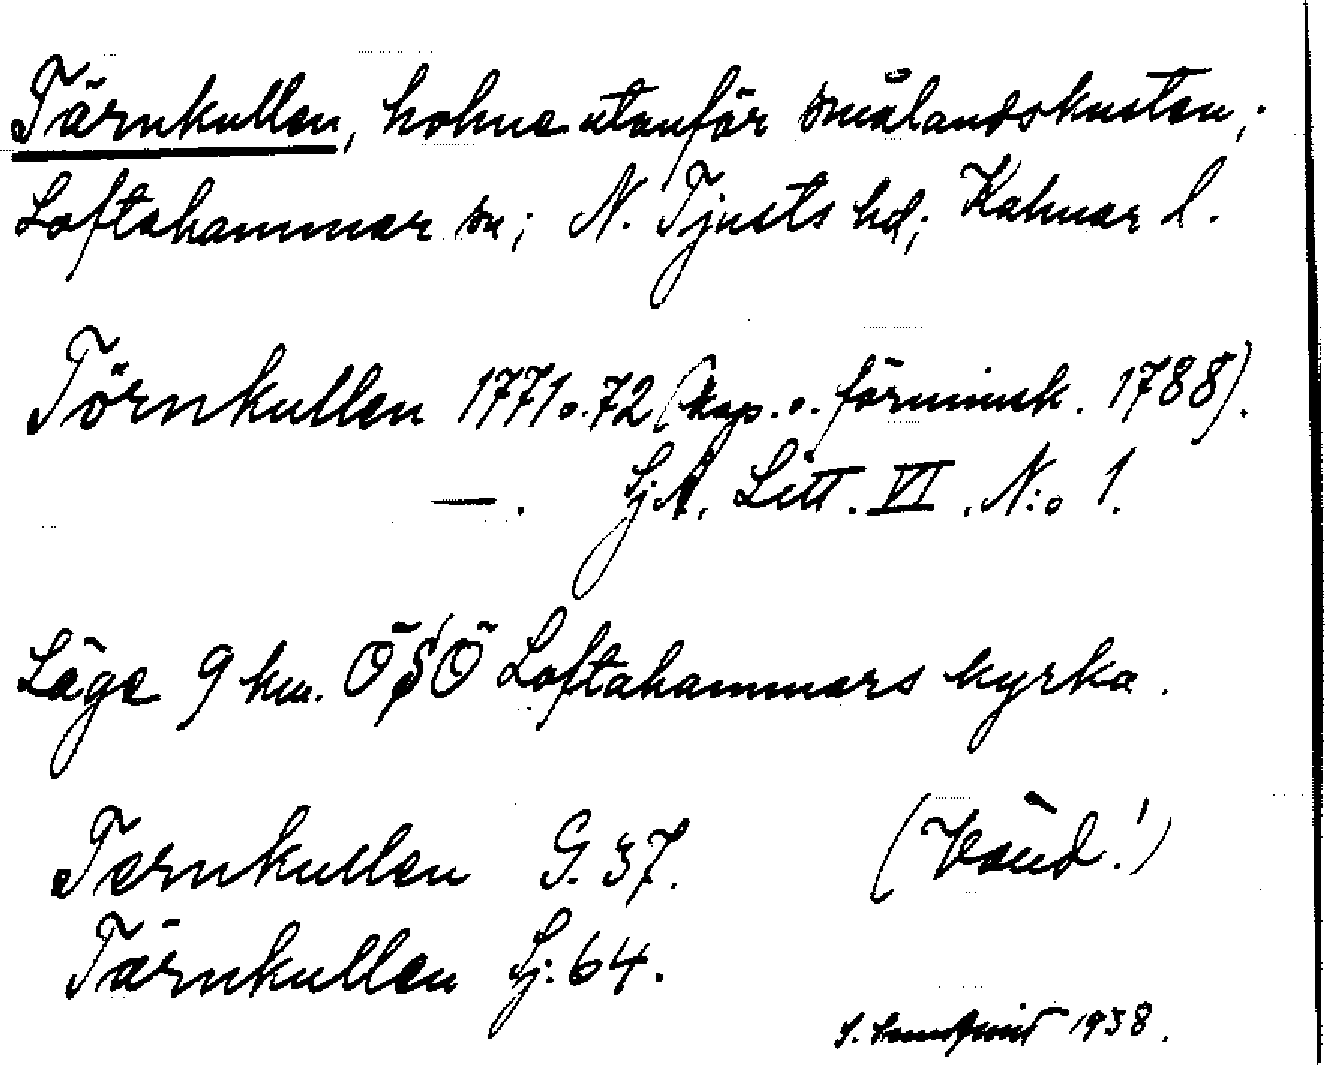 Tärnkullen, holme utanför smålandskusten,
Loftahammar sn; N. Tjusts hd; Kalmar l.
Törnkullen 1771 o. 72 (kop. o. förminsk. 1788).
—. SjA. Litt. VI. N:o 1.
Läge 9 km. ÖSÖ Loftahammars kyrka.
Ternkullen G. 37. (Vänd!)
Tärnkullen Sj. 64.
S. Lundqvist 1938.